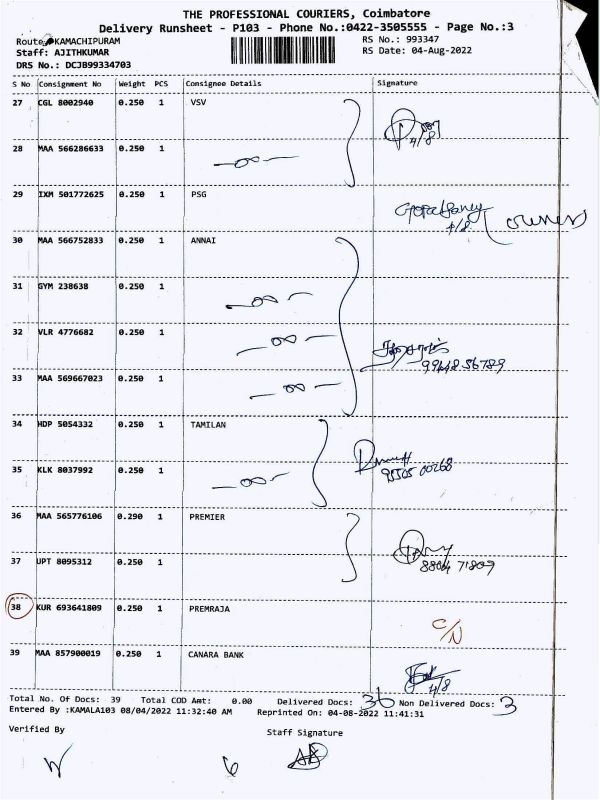 THE PROFESSIONAL COURIERS, Coimbatore
Delivery Runsheet - P103 - Phone No.:0422-3505555 - Page No.:3
Route: KAMACHIPURAM RS No.: 993347
Staff: AJITHKUMAR RS Date: 04-Aug-2022
DRS No.: DCJB99334703
S No Consignment No Weight PCS Consignee Details Signature
27 CGL 8002940 0.250 1 VSV
4/8
28 MAA 566286633 0.250 1
29 IXM 501772625 0.250 1 PSG
4/8
30 MAA 566752833 0.250 1 ANNAI
31 GYM 238638 0.250 1
32 VLR 4776682 0.250 1
33 MAA 569667023 0.250 1
34 HDP 5054332 0.250 1 TAMILAN
35 KLK 8037992 0.250 1
36 MAA 565776106 0.290 1 PREMIER
37 UPT 8095312 0.250 1
38 KUR 693641809 0.250 1 PREMRAJA
C/N
39 MAA 857900019 0.250 1 CANARA BANK
4/8
Total No. Of Docs: 39 Total COD Amt: 0.00 Delivered Docs: 36 Non Delivered Docs: 3
Entered By :KAMALA103 08/04/2022 11:32:40 AM Reprinted On: 04-08-2022 11:41:31
Verified By Staff Signature